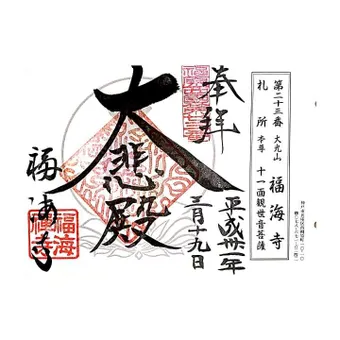 第二十三番 大光山 福海寺
札所 本尊 十一面観世音菩薩
奉拝
平成卅一年
三月十九日
大悲殿
福海寺